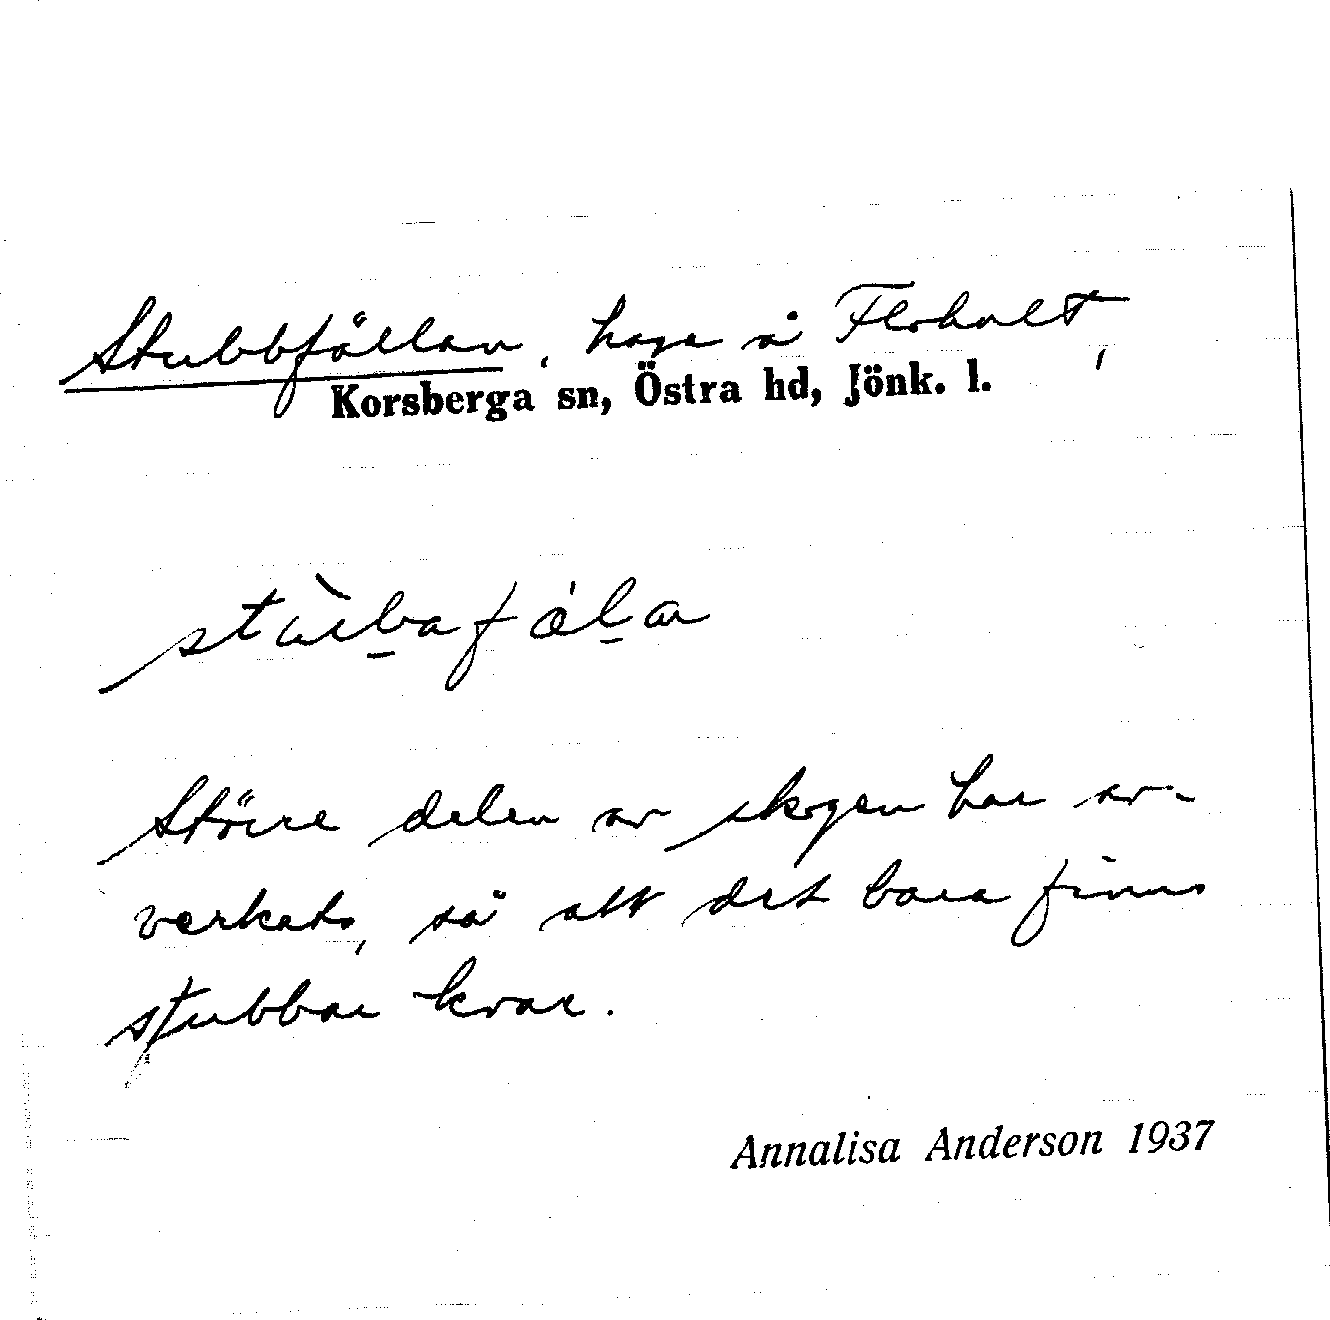 Stubbfällan, hage å Floholt,
Korsberga sn, Östra hd, Jönk. l.
Större delen av skogen har av-
verkats, så att det bara finns
stubbar kvar.
Annalisa Anderson 1937